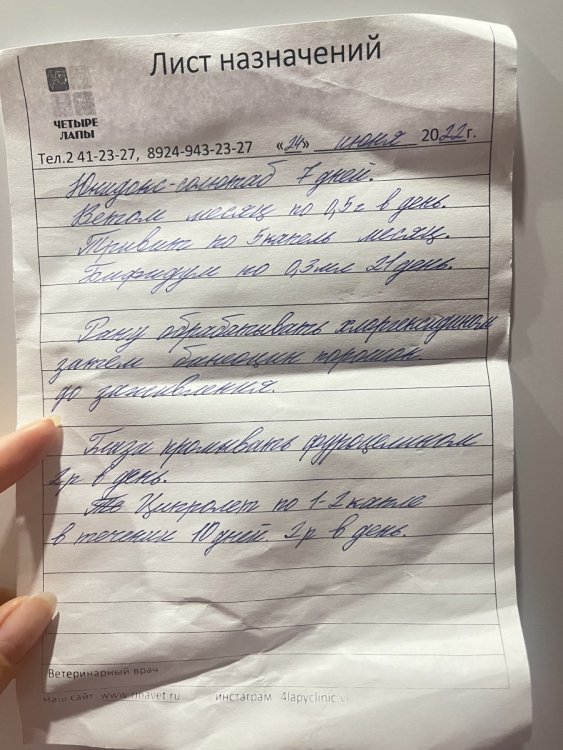 Лист назначений
ЧЕТЫРЕ
ЛАПЫ
Тел.2 41-23-27, 8924-943-23-27 «24» июня 2022г.
Юнидокс-солютаб 7 дней.
Ветом месяц по 0,5 г в день.
Тривит по 5 капель месяц.
Бифидум по 0,3 мл 21 день.
Рану обрабатывать хлоргексидином
затем банеоцин порошок
до заживления.
Глаза промывать фурацилином
2 р в день.
Ципролет по 1-2 капле
в течении 10 дней. 2 р в день.
Ветеринарный врач
Наш сайт инстаграм